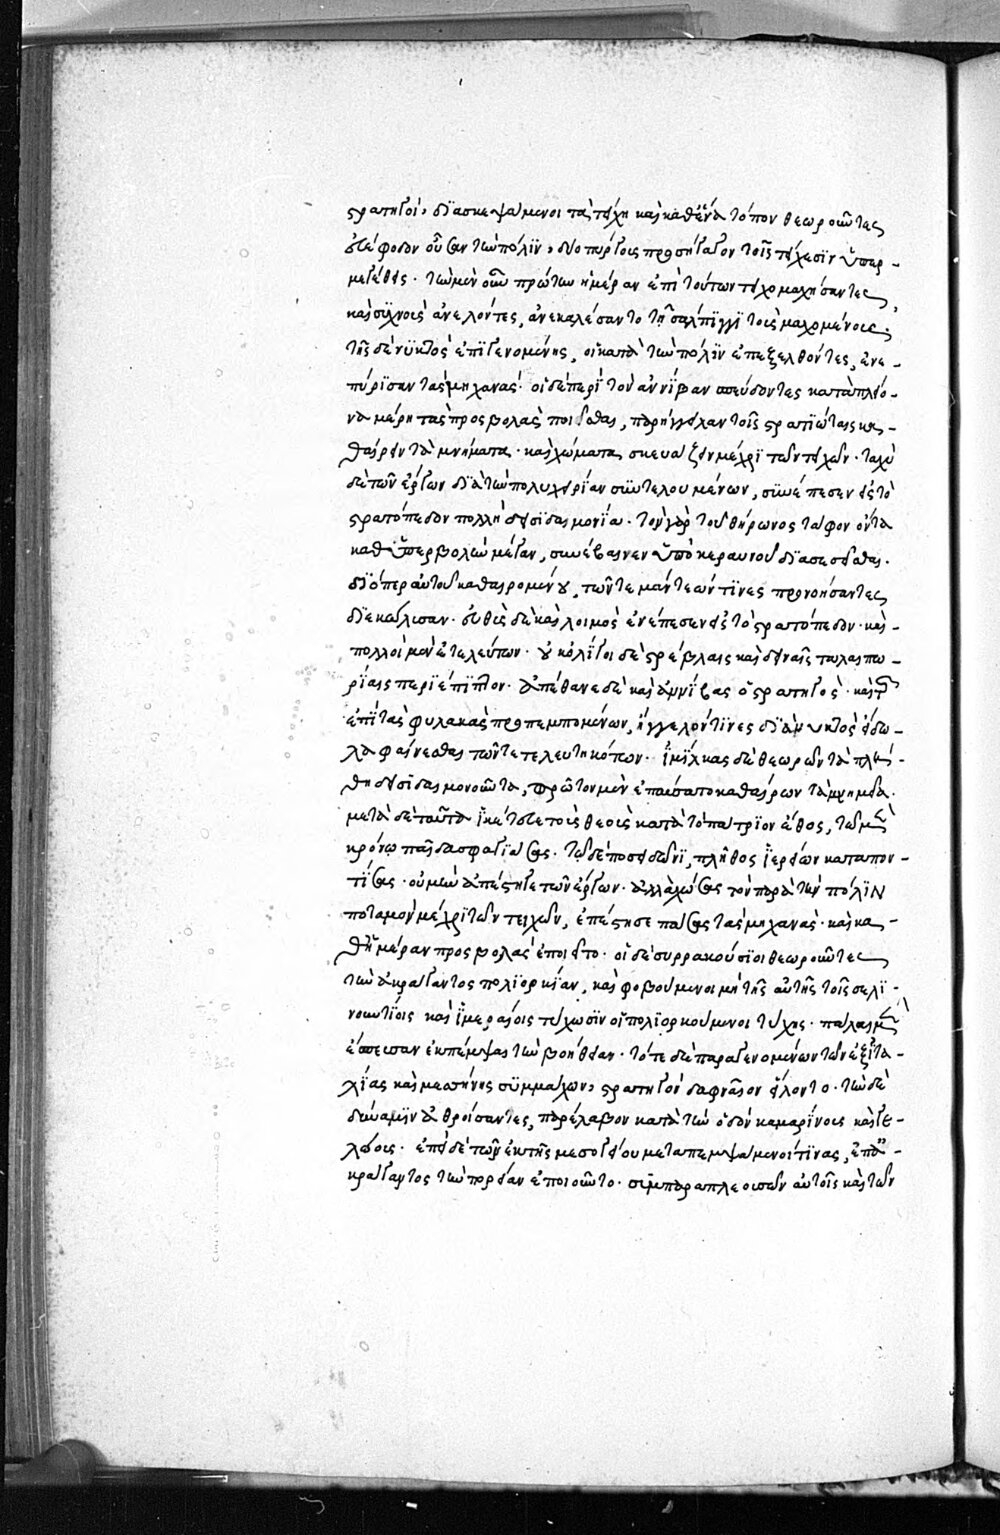 στρατηγοὶ, διασκεψάμενοι τὰ τείχη καὶ καθ' ἕνα τόπον θεωροῦντες
εὐέφοδον οὖσαν τὴν πόλιν, δύο πύργους προσήγαγον τοῖς τείχεσιν ὑπερ-
μεγέθεις. τὴν μὲν οὖν πρώτην ἡμέραν ἐπὶ τούτων τειχομαχήσαντες
καὶ συχνοὺς ἀνελόντες, ἀνεκαλέσαντο τῇ σάλπιγγι τοὺς μαχομένους.
τῆς δὲ νυκτὸς ἐπιγενομένης, οἱ κατὰ τὴν πόλιν ἐπεξελθόντες, ἐνε-
πύρισαν τὰς μηχανάς. οἱ δὲ περὶ τὸν ἀννίβαν σπεύδοντες κατὰ πλείο-
να μέρη τὰς προσβολὰς ποιεῖσθαι, παρήγγειλαν τοῖς στρατιώταις κα-
θαιρεῖν τὰ μνήματα. καὶ χώματα σκευάζειν μέχρι τῶν τειχῶν. ταχὺ
δὲ τῶν ἔργων διὰ τὴν πολυχειρίαν συντελουμένων, συνέπεσεν εἰς τὸ
στρατόπεδον πολλὴ δεισιδαιμονία. τὸν γὰρ τοῦ θήρωνος τάφον ὄντα
καθ' ὑπερβολὴν μέγαν, συνέβαινεν ὑπὸ κεραυνοῦ διασεσεῖσθαι.
διόπερ αὐτοῦ καθαιρουμένου, τῶν τε μάντεων τινες προνοήσαντες
διεκώλυσαν. εὐθὺς δὲ καὶ λοιμὸς ἐνέπεσεν εἰς τὸ στρατόπεδον. καὶ
πολλοὶ μὲν ἐτελεύτων. οὐκ ὀλίγοι δὲ στρέβλαις καὶ δειναῖς ταλαιπω-
ρίαις περιέπιπτον. ἀπέθανε δὲ καὶ ἀννίβας ὁ στρατηγός. καὶ τῶν
ἐπὶ τὰς φυλακὰς προπεμπομένων, ἤγγελόν τινες διὰ νυκτὸς εἴδω-
λα φαίνεσθαι τῶν τετελευτηκότων. ἰμίλκας δὲ θεωρῶν τὰ πλή-
θη δεισιδαιμονοῦντα, πρῶτον μὲν ἐπαύσατο καθαίρων τὰ μνημεῖα.
μετὰ δὲ ταῦτα ἱκέτευε τοὺς θεοὺς κατὰ τὸ πάτριον ἔθος, τῷ μὲν
κρόνῳ παῖδα σφαγιάσας. τῷ δὲ ποσειδῶνι, πλῆθος ἱερείων καταπον-
τίσας. οὐ μὴν ἀπέστη γε τῶν ἔργων. ἀλλὰ χώσας τὸν παρὰ τὴν πόλιν
ποταμὸν μέχρι τῶν τειχῶν, ἐπέστησε πάσας τὰς μηχανάς. καὶ κα-
θ' ἡμέραν προσβολὰς ἐποιεῖτο. οἱ δὲ συρρακούσιοι θεωροῦντες
τὴν ἀκράγαντος πολιορκίαν, καὶ φοβούμενοι μὴ τῆς αὐτῆς τοῖς σελι-
νουντίοις καὶ ἱμεραίοις τύχωσιν οἱ πολιορκούμενοι τύχης. πάλαι μὲν
ἔσπευσαν ἐκπέμψαι τὴν βοήθειαν. τότε δὲ παραγενομένων τῶν ἐξ ἰτα-
λίας καὶ μεσσήνης συμμάχων, στρατηγὸν δαφναῖον εἵλοντο. τὴν δὲ
δύναμιν ἀθροίσαντες, παρέλαβον κατὰ τὴν ὁδὸν καμαριναίους καὶ γε-
λώους. ἔτι δὲ τῶν ἐκ τῆς μεσογείου μεταπεμψάμενοί τινας, ἐπ' ἀ-
κράγαντος τὴν πορείαν ἐποιοῦντο. συμπαραπλεουσῶν αὐτοῖς καὶ τῶν